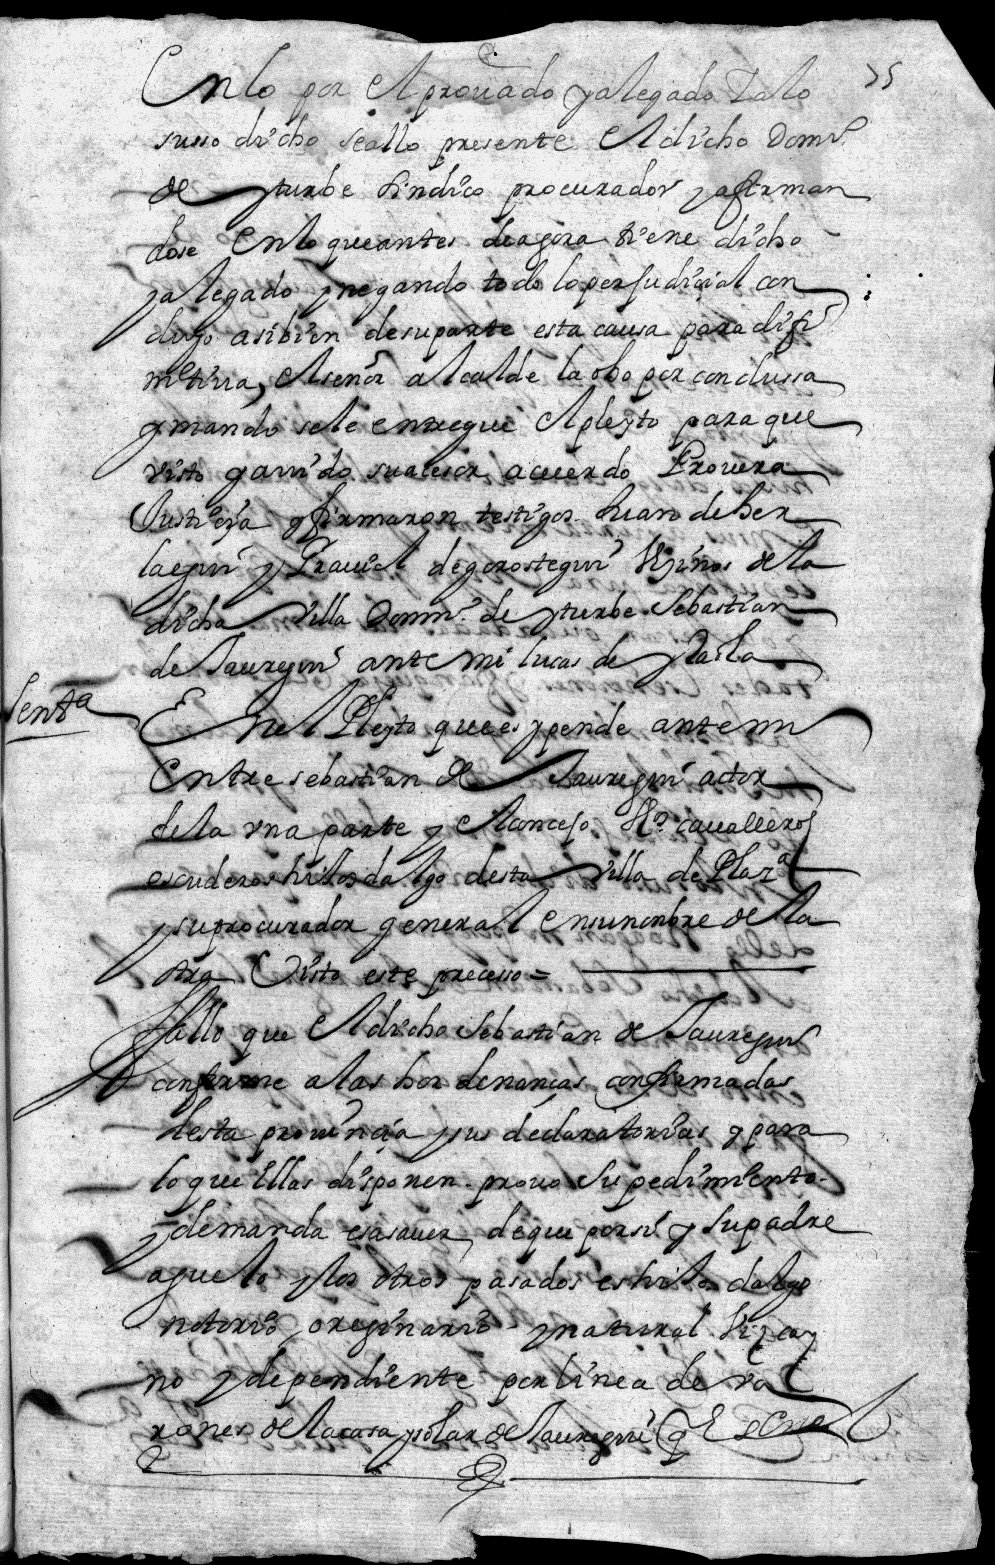 75
En lo por el provado y alegado y a lo
susso dicho se allo presente el dicho Domi.
de yturbe sindico procurador y afirman
dose en lo que antes de agora tiene dicho
y alegado y negando todo lo perjudiçial con
cluyo asibien de su parte esta causa para difi
nitiva, el señor alcalde la obo por conclussa
y mando se le entregue el pleyto para que
visto y avido su acuerdo Provera
Justicia y firmaron testigos Juan de Ber
laegui y Graviel de gorostegui vezinos de la
dicha villa Domi. de yturbe Sebastian
de Jauregui ante mi lucas de
Sentª
En el Pleyto que es y pende ante mi
Entre sebastian de Jauregui actor
de la vna parte y el conçejo Js. cavalleros
escuderos hijosdalgo desta villa de Plazª
y su procurador general en su nonbre de la
otra Visto este processo =
Fallo que el dicho Sebastian de Jauregui
conforme a las hordenanças confirmadas
desta provinçia y sus declaratorias y para
lo que ellas disponen provo su pedimiento
y demanda es a saver de que por si y su padre
aguelo y los otros pasados es hijo dalgo
notorio oreginario y natural Vizcay
no y dependiente por linea de va
rones de la casa y solar de Jauregui q Es en el